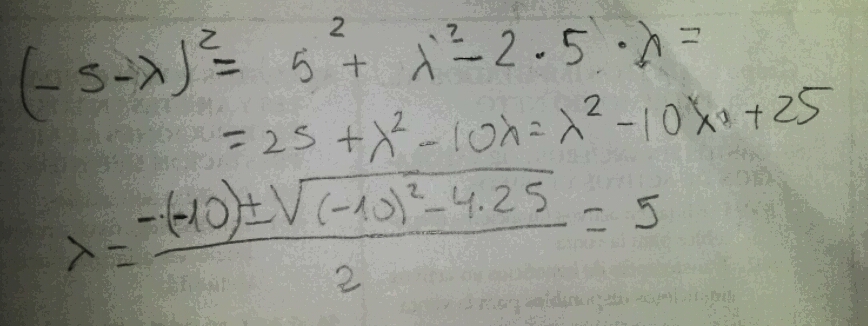 (-5-λ)² = 5² + λ² - 2·5·λ =
= 25 + λ² - 10λ = λ² - 10λ + 25
λ = (-(-10) ± √((-10)² - 4.25)) / 2 = 5